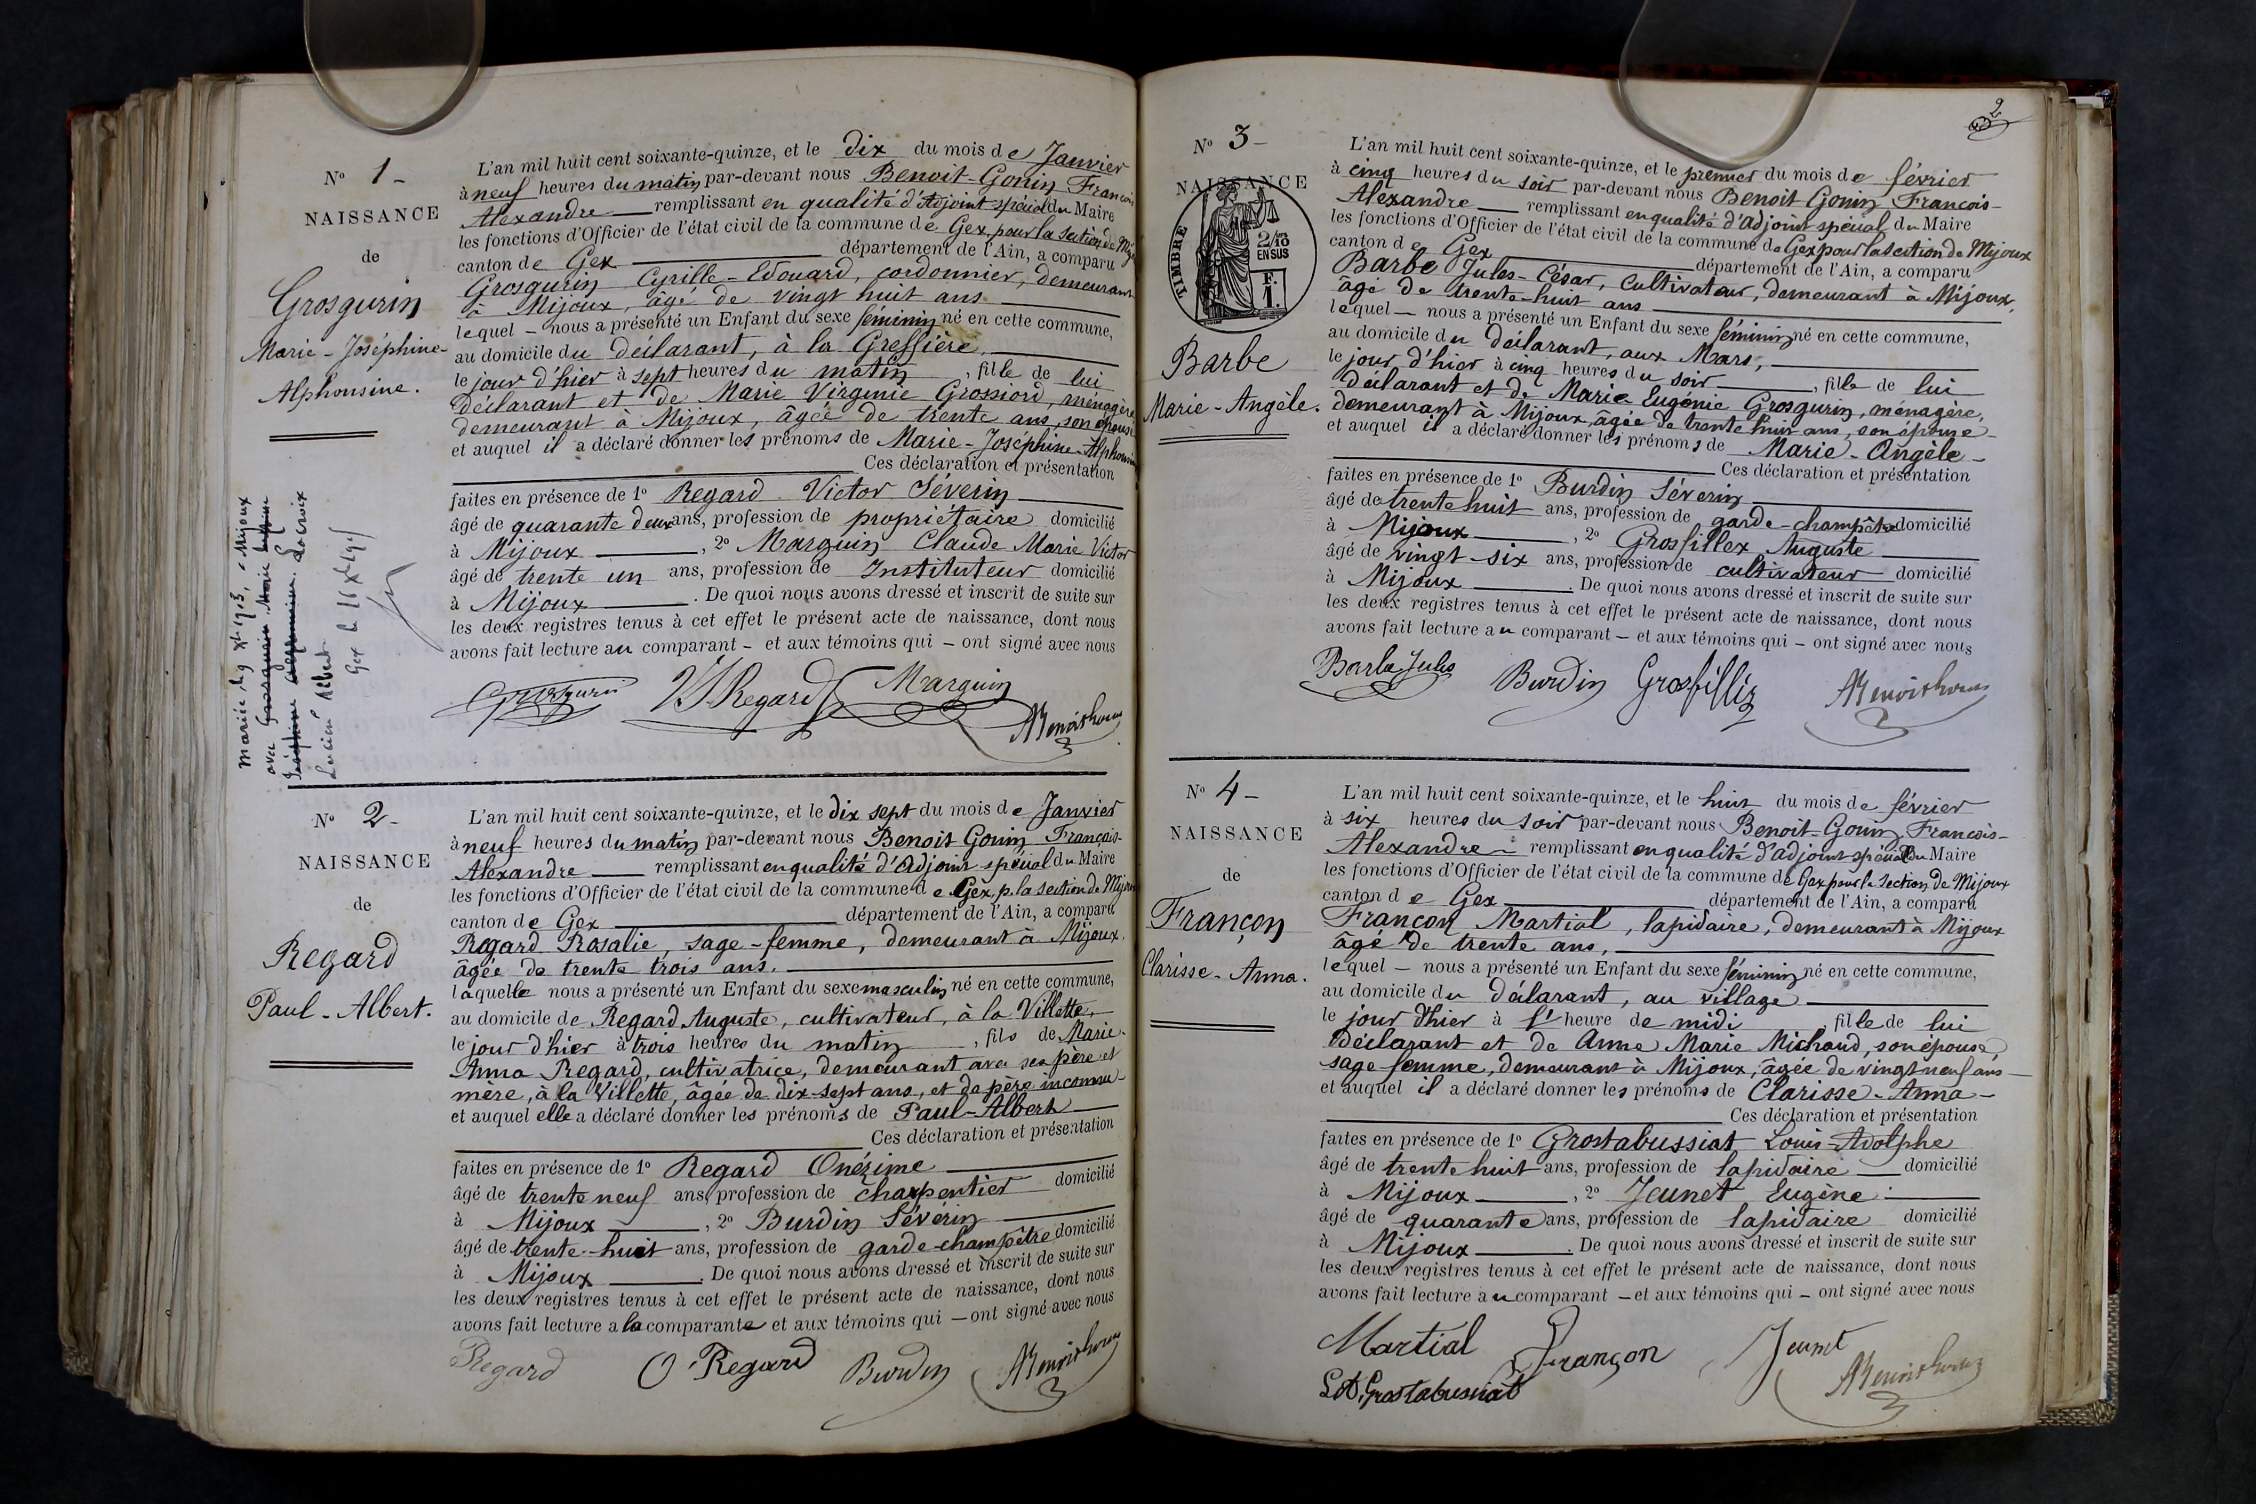 N° 1 -
NAISSANCE
de
Grosgurin
Marie - Joséphine -
Alphonsine.
L'an mil huit cent soixante-quinze, et le dix du mois de Janvier
à neuf heures du matin par-devant nous Benoit-Gonin François
Alexandre remplissant en qualité d'Adjoint spécial du Maire
les fonctions d'Officier de l'état civil de la commune de Gex, pour la section de
canton de Gex département de l'Ain, a comparu
Grosgurin Cyrille-Edouard, cordonnier, demeurant
à Mijoux, âgé de vingt huit ans
lequel - nous a présenté un Enfant du sexe féminin né en cette commune,
au domicile du déclarant, à la Greffière,
le jour d'hier à sept heures du matin , fille de lui
déclarant et de Marie Virginie Grossiord, ménagère
demeurant à Mijoux, âgée de trente ans, son épouse
et auquel il a déclaré donner les prénoms de Marie-Joséphine-Alphonsine
Ces déclaration et présentation
faites en présence de 1° Regard Victor Séverin
âgé de quarante deux ans, profession de propriétaire domicilié
à Mijoux , 2° Marquin Claude Marie Victor
âgé de trente un ans, profession de Instituteur domicilié
à Mijoux . De quoi nous avons dressé et inscrit de suite sur
les deux registres tenus à cet effet le présent acte de naissance, dont nous
avons fait lecture au comparant - et aux témoins qui - ont signé avec nous
Grosgurin VSRegard Marquin ABenoitGonin
mariée le 9 Xbre 1913, à Mijoux
avec Grosgurin Marie
Joséphine Alphonsine. Lacroix
Lucien Albert
Gex le 16 Xbre
N° 2 -
NAISSANCE
de
Regard
Paul - Albert.
L'an mil huit cent soixante-quinze, et le dix sept du mois de Janvier
à neuf heures du matin par-devant nous Benoit Gonin François-
Alexandre remplissant en qualité d'Adjoint spécial du Maire
les fonctions d'Officier de l'état civil de la commune de Gex, p. la section de Mijoux
canton de Gex département de l'Ain, a comparu
Regard Rosalie, sage-femme, demeurant à Mijoux,
âgée de trente trois ans.
laquelle nous a présenté un Enfant du sexe masculin né en cette commune,
au domicile de Regard Auguste, cultivateur, à la Villette,
le jour d'hier à trois heures du matin , fils de Marie-
Anna Regard, cultivatrice, demeurant avec ses père et
mère, à la Villette, âgée de dix-sept ans, et de père inconnu-
et auquel elle a déclaré donner les prénoms de Paul-Albert
Ces déclaration et présentation
faites en présence de 1° Regard Onézime
âgé de trente neuf ans, profession de charpentier domicilié
à Mijoux , 2° Burdin Sévérin
âgé de trente-huit ans, profession de garde-champêtre domicilié
à Mijoux . De quoi nous avons dressé et inscrit de suite sur
les deux registres tenus à cet effet le présent acte de naissance, dont nous
avons fait lecture a la comparante et aux témoins qui - ont signé avec nous
Regard O. Regard Burdin ABenoitGonin
2
N° 3 -
NAISSANCE
TIMBRE
2/10
EN SUS
F.
1.
Barbe
Marie - Angèle.
L'an mil huit cent soixante-quinze, et le premier du mois de février
à cinq heures du soir par-devant nous Benoit Gonin François-
Alexandre remplissant en qualité d'Adjoint spécial du Maire
les fonctions d'Officier de l'état civil de la commune de Gex pour la section de Mijoux
canton de Gex département de l'Ain, a comparu
Barbe Jules-César, Cultivateur, demeurant à Mijoux,
âgé de trente-huit ans
lequel - nous a présenté un Enfant du sexe féminin né en cette commune,
au domicile du déclarant, aux Mars,
le jour d'hier à cinq heures du soir , fille de lui
déclarant et de Marie Eugénie Grosgurin, ménagère,
demeurant à Mijoux, âgée de trente huit ans, son épouse-
et auquel il a déclaré donner les prénoms de Marie-Angèle-
Ces déclaration et présentation
faites en présence de 1° Burdin Séverin
âgé de trente huit ans, profession de garde-champêtre domicilié
à Mijoux , 2° Grosfillex Auguste
âgé de vingt-six ans, profession de cultivateur domicilié
à Mijoux . De quoi nous avons dressé et inscrit de suite sur
les deux registres tenus à cet effet le présent acte de naissance, dont nous
avons fait lecture au comparant - et aux témoins qui - ont signé avec nous
Barbe Jules Burdin Grosfillex ABenoitGonin
N° 4 -
NAISSANCE
de
Françon
Clarisse - Anna.
L'an mil huit cent soixante-quinze, et le huit du mois de février
à six heures du soir par-devant nous Benoit-Gonin François-
Alexandre - remplissant en qualité d'adjoint spécial du Maire
les fonctions d'Officier de l'état civil de la commune de Gex pour la section de Mijoux
canton de Gex département de l'Ain, a comparu
Françon Martial, lapidaire, demeurant à Mijoux
âgé de trente ans,
lequel - nous a présenté un Enfant du sexe féminin né en cette commune,
au domicile du déclarant, au village
le jour d'hier à l' heure de midi , fille de lui
déclarant et de Anne Marie Michaud, son épouse,
sage femme, demeurant à Mijoux, âgée de vingt neuf ans
et auquel il a déclaré donner les prénoms de Clarisse-Anna-
Ces déclaration et présentation
faites en présence de 1° Grostabussiat Louis-Adolphe
âgé de trente huit ans, profession de lapidaire domicilié
à Mijoux , 2° Jeunet Eugène
âgé de quarante ans, profession de lapidaire domicilié
à Mijoux . De quoi nous avons dressé et inscrit de suite sur
les deux registres tenus à cet effet le présent acte de naissance, dont nous
avons fait lecture au comparant - et aux témoins qui - ont signé avec nous
Martial Françon Jeunet ABenoitGonin
Ls Ad. Grostabussiat